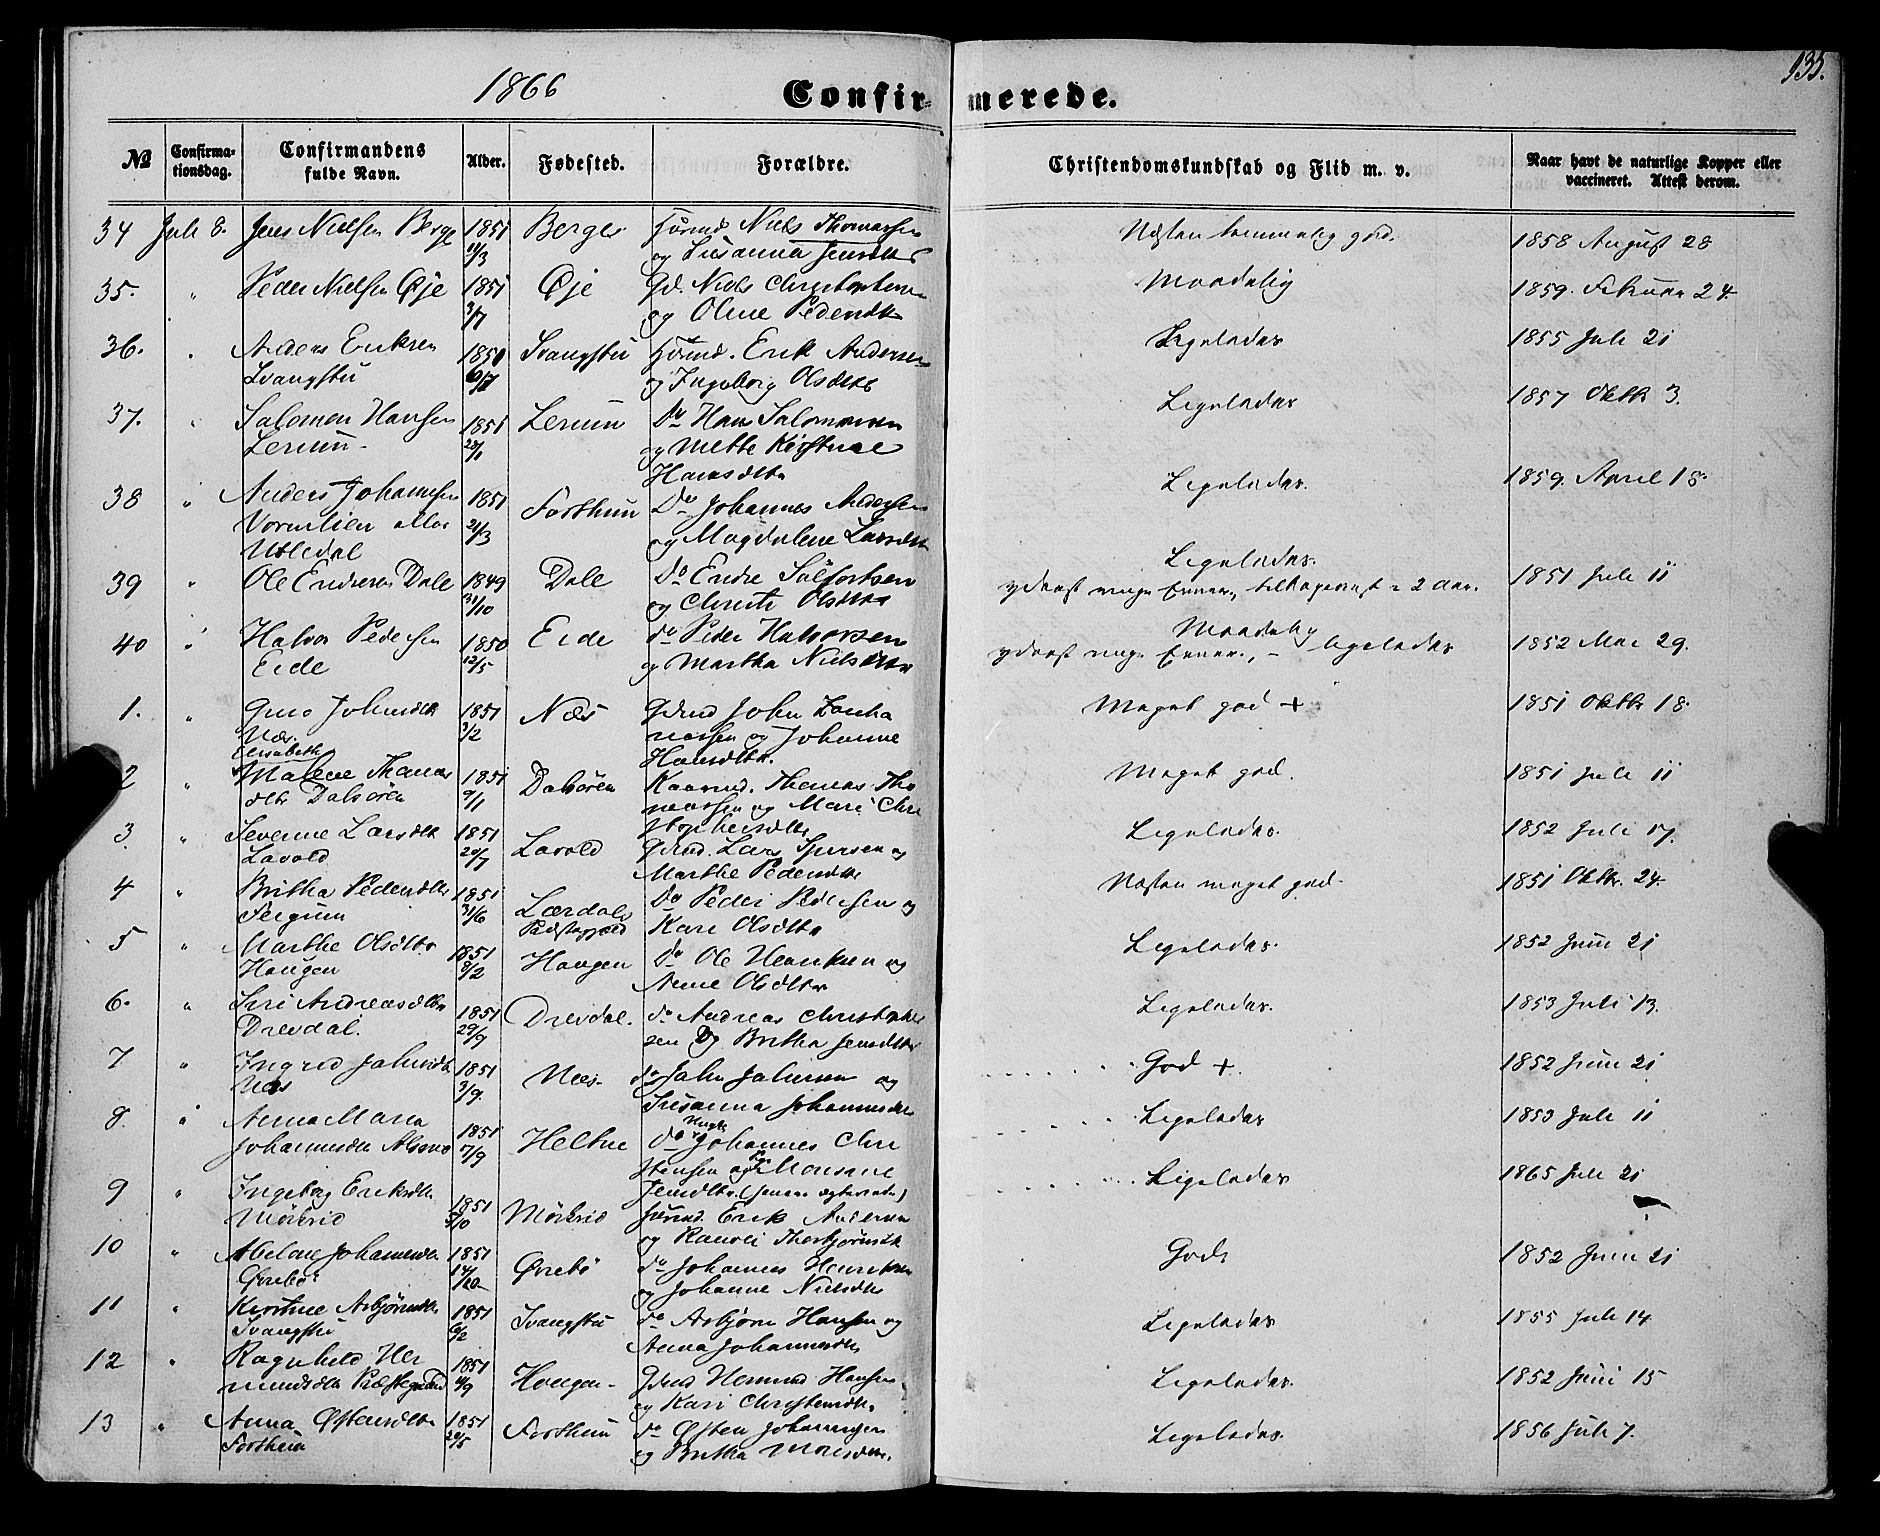 135.
1866
Confirmerede.
№ Confirmationsdag. Confirmandens fulde Navn. Alder. Fødested. Forældre. Christendomskundskab og Flid m. v. Naar havt de naturlige Kopper eller vaccineret. Attest derom.
34 Juli 8. Jens Nielsen Berge 1851 11/3 Berge Huusmd Niels Thomassen og Susanna Jensdtr Næsten temmelig god. 1858 August 28
35. " Peder Nielsen Øje 1851 3/7 Øje Gd. Niels Christophersen og Oline Pedersdtr Maadelig 1859. Februar 24.
36. " Anders Eriksen Svangstu 1850 Svangstu Huusmd. Erik Andersen og Ingeborg Olsdtr Ligeledes 1855 Juli 21
37. " Salomon Hansen Lerum 1851 28/1 Lerum do Hans Salomonsen og Mette Kirstine Hansdtr Ligeledes 1857 Oktb 3.
38 " Anders Johannesen Vormlien eller Utledal 1851 21/3 Forthun Do Johannes Andersen og Magdalene Larsdtr Ligeledes. 1859. April 18.
39 " Ole Endresen Dale 1849 31/10 Dale Do Endre Salfortsen og Christi Olsdtr Ligeledes. yderst ringe Evner, 2 Aar. 1851 Juli 11
40 " Halvor Pedersen Eide 1850 12/5 Eide do Peder Halvorsen og Martha Nielsdtr Maadelig yderst ringe Evner., – ligeledes 1852 Mai 29.
1. " Johnsdtr Næs 1851 3/2 Næs Gdmd John Johanne Hansdtr. Meget god + 1851 Oktbr 18.
2 " Elisabeth Malene Thomasdtr Dalsøren 1851 9/1 Dalsøren Kaarmd. Thomas Thomassen og Mari Christophersdtr Meget god. 1851 Juli 11
3. " Severine Larsdtr Lavold 1851 20/7 Lavold Gdmd. Lars Sjursen og Marthe Pedersdtr Ligeledes. 1852 Juli 17.
4 " Britha Pedersdtr Fergum 1851 31/6 Lærdals Præstegjæld Do Peder Pedersen og Kari Olsdtr Næsten meget god. 1851 Oktbr. 24.
5 " Marthe Olsdtr. Haugen 1851 9/2 Haugen do Ole Henriksen og Anne Olsdtr Ligeledes. 1852 Juni 21
6. " Siri Andreasdtr Drevdal. 1851 29/7 Drevdal. do Andreas Christophersen og Britha Jensdtr Ligeledes. 1853 Juli 13.
7 " Ingrid Johnsdtr Næs 1851 3/9. Næs. do John Johnsen og Susanna Johannesdtr God +. 1852 Juni 21
8. " Anna Maria Johannesdtr Alsmo 1851 17/9 Heltne do Ungk. Johannes Christensen og Pige Monsine Jensdtr. (senere ægteviede) Ligeledes 1853 Juli 11
9 " Ingeborg Eriksdtr Mörkrid 1851 5/10 Mörkrid Huusmd. Erik Andersen og Ranvei Thorbjørnsdtr Ligeledes 1865 Juli 21
10 " Abelone Johannesdtr Ørrebö 1851 14/10 Ørrebö do Johannes Henriksen og Johanne Nielsdtr God 1852 Juni 21
11 " Kirstine Asbjørnsdtr Svangstu 1851 6/2 Svangstu do Asbjörn Hansen og Anna Johannesdtr Ligeledes 1855 Juli 14
12 " Ragnhild Hermundsdtr Præstegaard 1851 4/9 Haugen Gdmd Hermund Hansen og Kari Christensdtr. Ligeledes. 1852 Juni 15
13 " Anna Østensdtr Forthun 1851 20/5 Forthun do Østen Johannesen og Britha Monsdtr. Ligeledes. 1856 Juli 7.